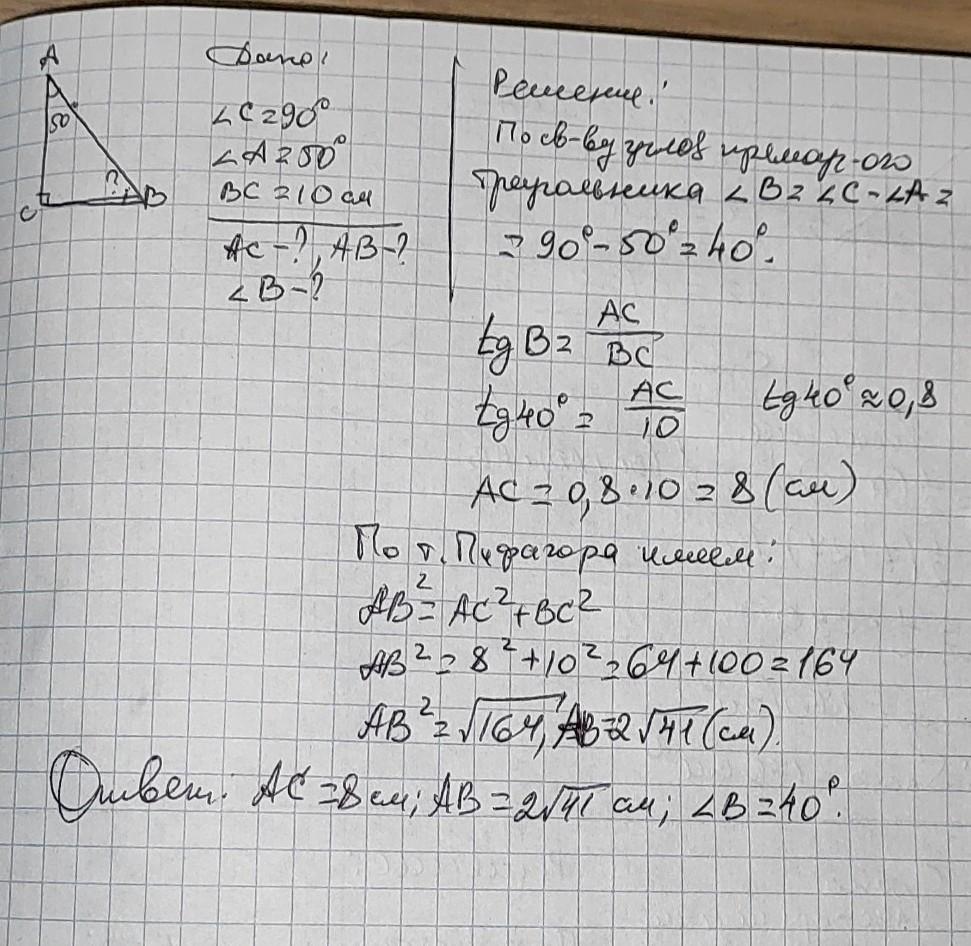 A
50
?
C
B
Дано:
∠C=90°
∠A=50°
BC=10 см
AC-?, AB-?
∠B-?
Решение:
По св-ву углов прямоуг-ого
треугольника ∠B=∠C-∠A=
=90°-50°=40°.
tg B= AC/BC
tg 40°= AC/10 tg 40°≈0,8
AC=0,8·10=8 (см)
По т. Пифагора имеем:
AB²=AC²+BC²
AB²=8²+10²=64+100=164
AB²=√164, AB=2√41 (см).
Ответ: AC=8 см; AB=2√41 см; ∠B=40°.